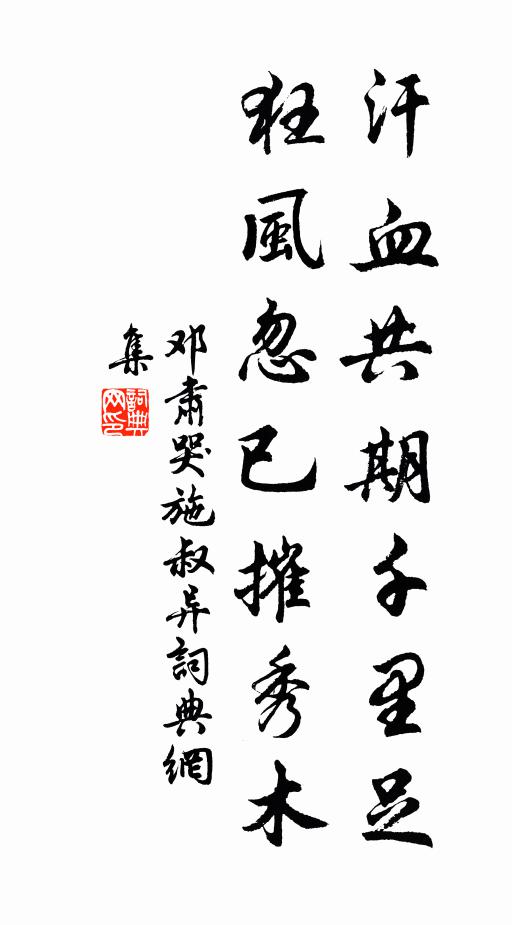 汗血共期千里足
狂風忽已摧秀木
邓肅哭施叔异詞典網
集
詞典
网印